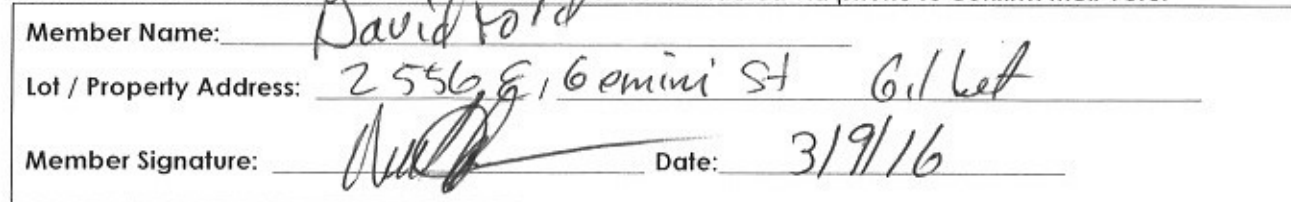 Member Name: David Ford
Lot / Property Address: 2556 E, Gemini St Gilbet
Member Signature:
Date: 3/9/16